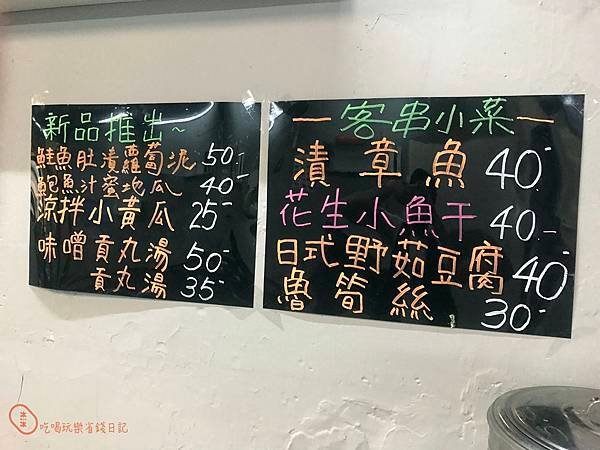 新品推出~
鮭魚肚漬蘿蔔泥 50-
鮑魚汁蜜地瓜 40-
涼拌小黃瓜 25-
味噌貢丸湯 50-
貢丸湯 35-
一客串小菜一
漬章魚 40-
花生小魚干 40.-
日式野菇豆腐 40-
魯筍絲 30-
吃喝玩樂省錢日記